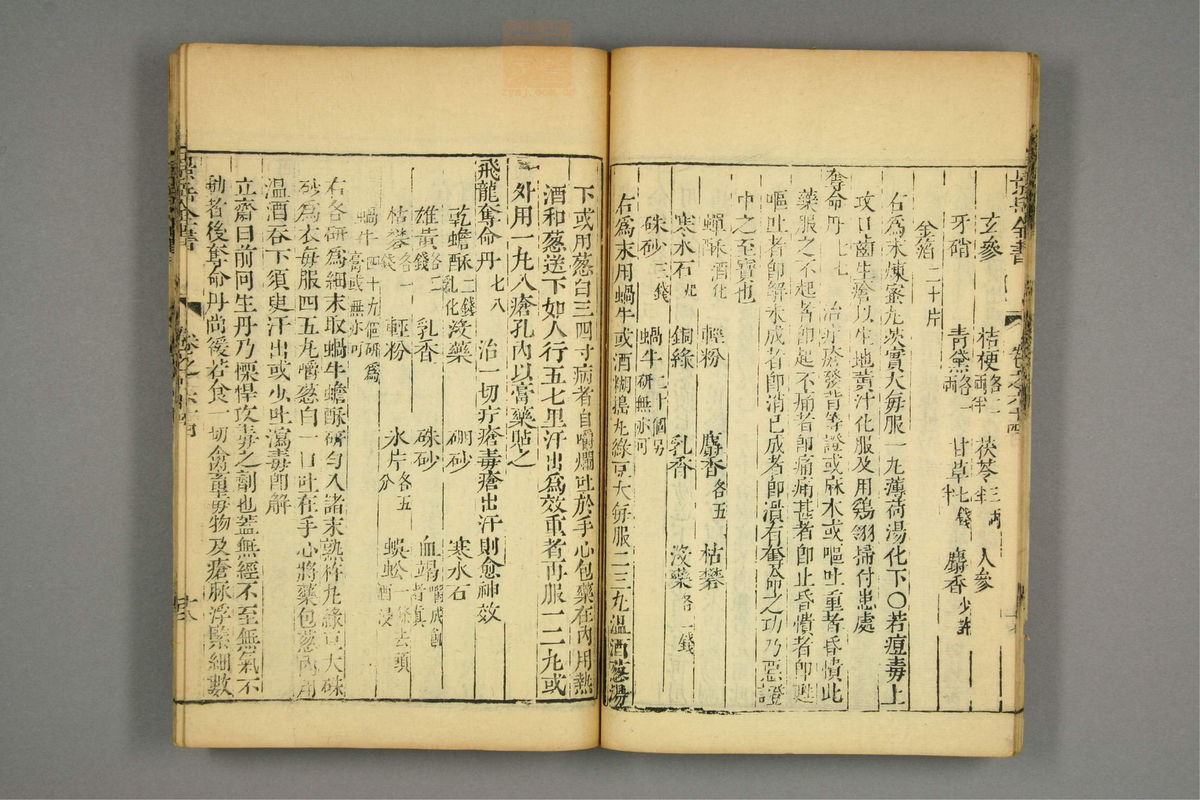 景岳全書 卷之六十四
玄參 桔梗各二兩半 茯苓三兩半 人參
牙硝 青黛各一兩 甘草七錢半 麝香少許
金箔二十片
右為末煉蜜丸芡實大每服一丸薄荷湯化下○若痘毒上
攻口齒生瘡以生地黃汁化服及用鷄翎掃付患處
奪命丹七七 治疔瘡發背等證或麻木或嘔吐重者昏憒此
藥服之不起者即起不痛者即痛痛甚者即止昏憒者即甦
嘔吐者即解未成者即消已成者即潰有奪命之功乃惡證
中之至寶也
蟬酥酒化 輕粉 麝香各五 枯礬
寒水石 銅綠 乳香 沒藥各一錢
硃砂三錢 蝸牛二十個另研無亦可
右為末用蝸牛或酒糊搗丸綠豆大每服二三丸溫酒葱湯
下或用葱白三四寸病者自嚼爛吐於手心包藥在內用熱
酒和葱送下如人行五七里汗出為效重者再服一二丸或
外用一丸入瘡孔內以膏藥貼之
飛龍奪命丹七八 治一切疔瘡毒瘡出汗則愈神效
乾蟾酥二錢乳化 沒藥 硼砂 寒水石
雄黃各二錢 乳香 硃砂 血竭
枯礬各一錢 輕粉 氷片各五分 蜈蚣一條去頭酒浸
蝸牛四十九個研為膏或無亦可
右各研為細末取蝸牛蟾酥研勻入諸末熟杵丸綠豆大硃
砂為衣每服四五丸嚼葱白一口吐在手心將藥包葱內用
溫酒吞下須臾汗出或少吐瀉毒即解
立齋曰前回生丹乃慓悍攻毒之劑也蓋無經不至無氣不
動者後奪命丹尚緩若食一切禽畜毒物及瘡脉浮緊細數
景岳全書 卷之六十四